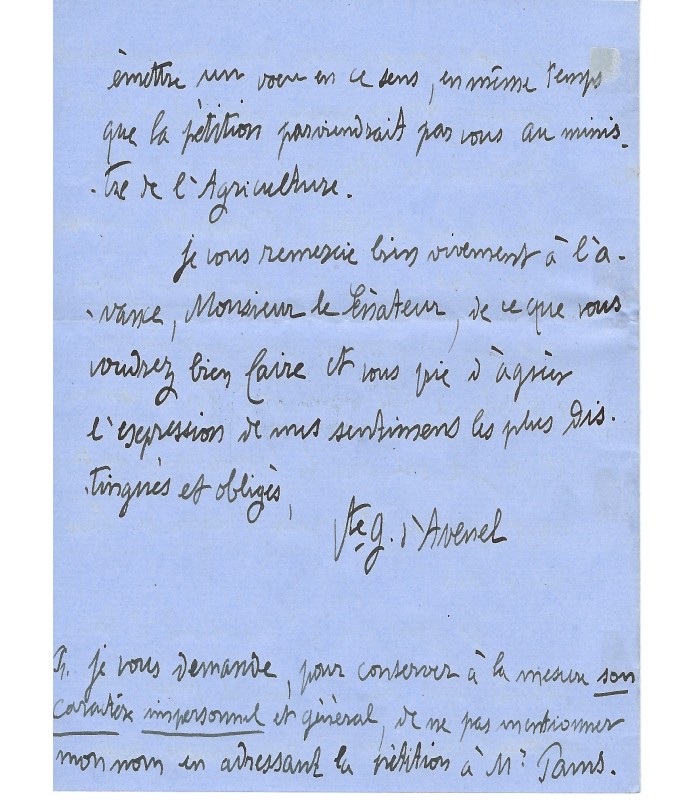 émettre un voeu en ce sens, en même temps
que la pétition parviendrait par vous au minis-
-tre de l'Agriculture.
je vous remercie bien vivement à l'a-
-vance, Monsieur le Sénateur, de ce que vous
voudrez bien faire et vous prie d'agréer
l'expression de mes sentimens les plus dis-
-tingués et obligés,
Vte G. d'Avenel
P.S. je vous demande, pour conserver à la mesure son
caractère impersonnel et général, de ne pas mentionner
mon nom en adressant la pétition à Mr. Pams.